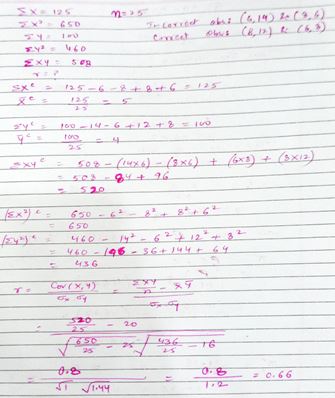 Σx = 125 n = 25
Σx² = 650
Σy = 100
Σy² = 460
Σxy = 508
r = ?
Incorrect obns (6,14) & (8,6)
Correct obns (8,12) & (6,8)
Σxᶜ = 125 - 6 - 8 + 8 + 6 = 125
x̄ᶜ = 125/25 = 5
Σyᶜ = 100 - 14 - 6 + 12 + 8 = 100
ȳᶜ = 100/25 = 4
Σxyᶜ = 508 - (14×6) - (8×6) + (6×8) + (8×12)
= 508 - 84 + 96
= 520
(Σx²)ᶜ = 650 - 6² - 8² + 8² + 6²
= 650
(Σy²)ᶜ = 460 - 14² - 6² + 12² + 8²
= 460 - 196 - 36 + 144 + 64
= 436
r = Cov(x,y)/σx σy = (Σxy/n - x̄ȳ)/σx σy
= (520/25 - 20)/(√(650/25 - 25) √(436/25 - 16))
= 0.8/(√1 √1.44) = 0.8/1.2 = 0.66